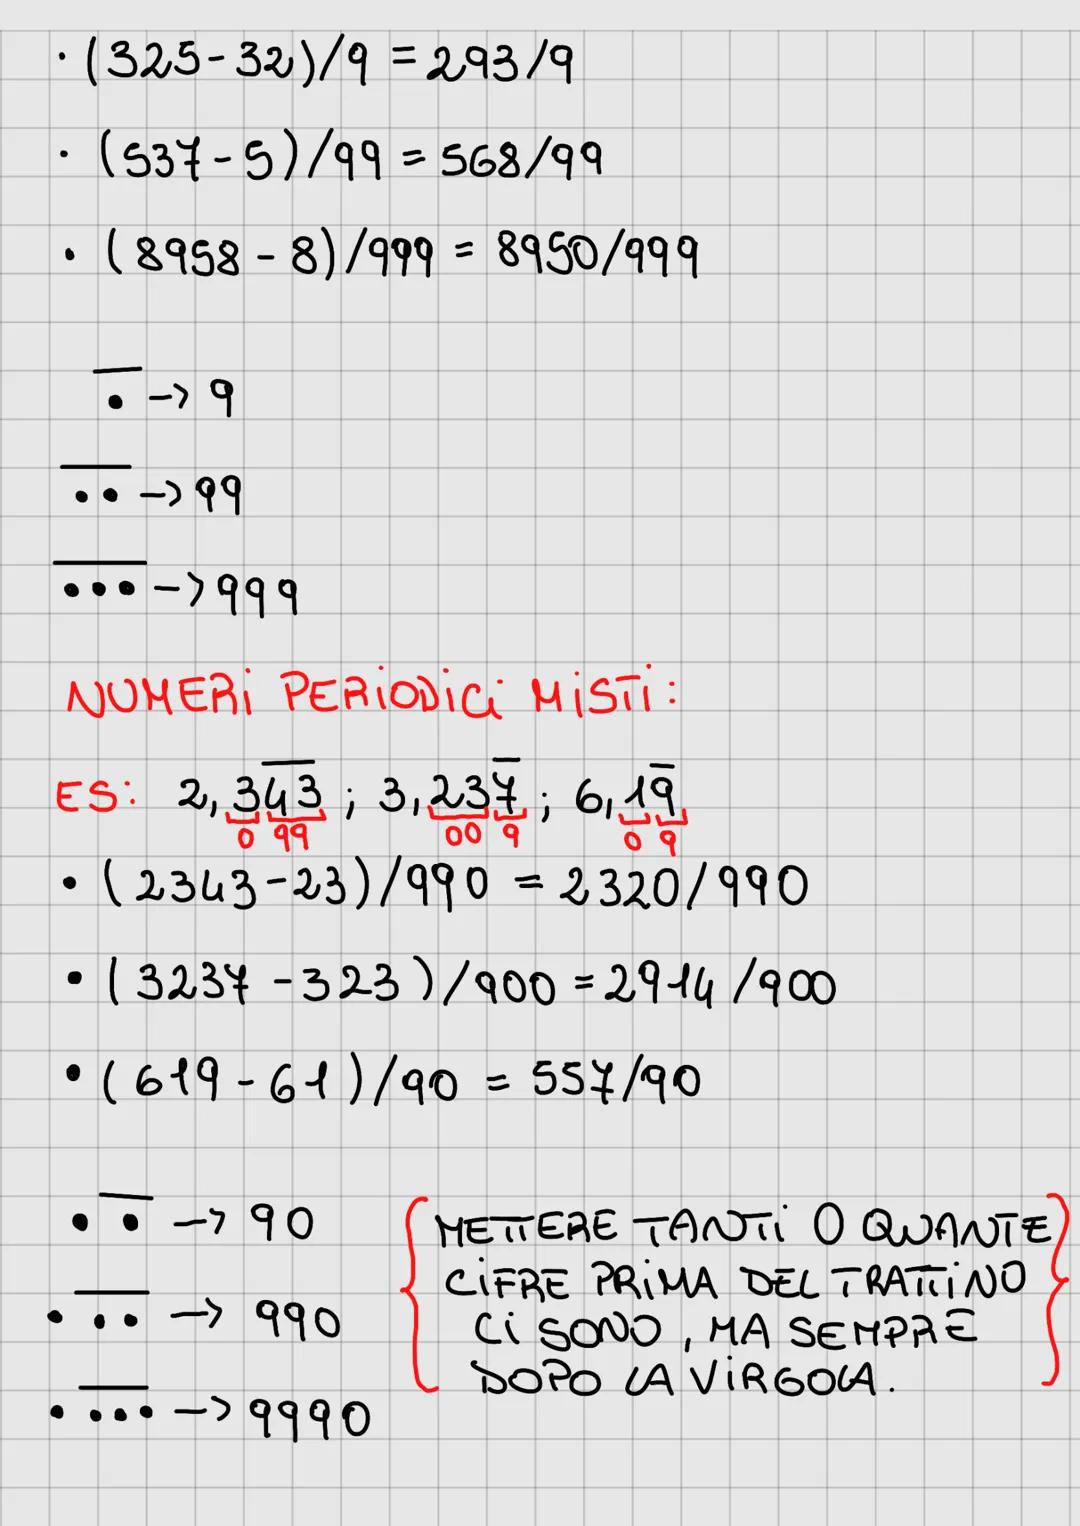 · (325-32)/9 = 293/9
· (537-5)/99 = 568/99
· (8958-8)/999 = 8950/999
•̅ -> 9
•̅•̅ -> 99
•̅•̅•̅ -> 999
NUMERI PERIODICI MISTI:
ES: 2,34̅3̅ ; 3,237̅ ; 6,19̅
0 99 00 9 0 9
• (2343-23)/990 = 2320/990
• (3237-323)/900 = 2914/900
• (619-61)/90 = 557/90
• •̅ -> 90
• •̅•̅ -> 990
• •̅•̅•̅ -> 9990
{METTERE TANTI 0 QUANTE}
CIFRE PRIMA DEL TRATTINO
CI SONO, MA SEMPRE
DOPO LA VIRGOLA.